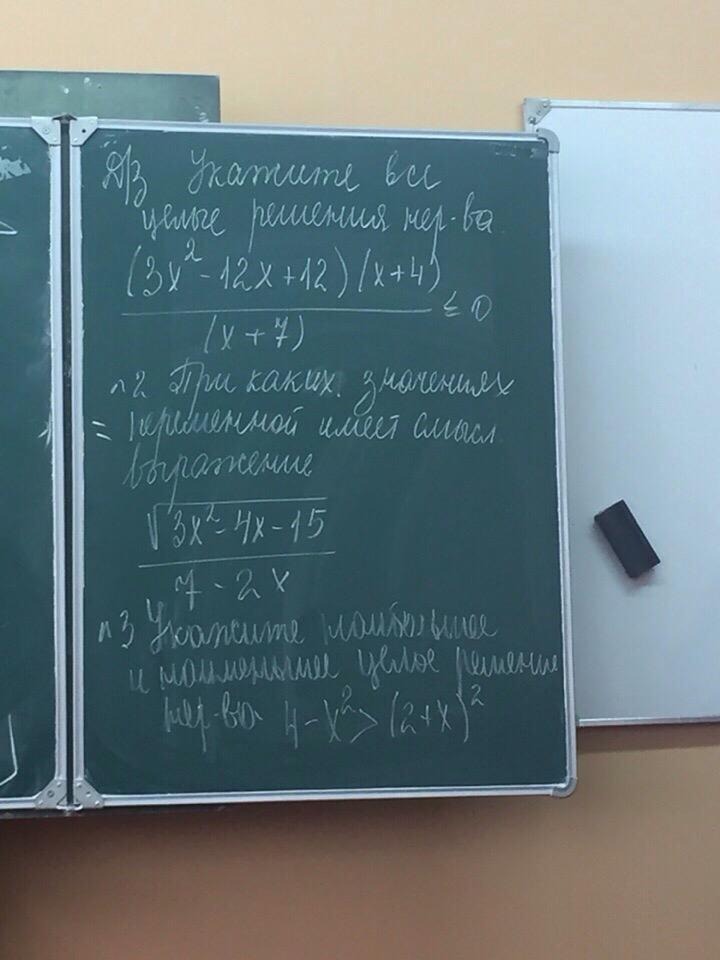 Д/З Укажите все
целые решения нер-ва
(3x² - 12x + 12)(x + 4)
≤ 0
(x + 7)
n2 При каких значениях
переменной имеет смысл
выражение
√3x² - 4x - 15
7 - 2x
n3 Укажите наибольшее
и наименьшее целое решение
нер-ва 4 - x² > (2 + x)²